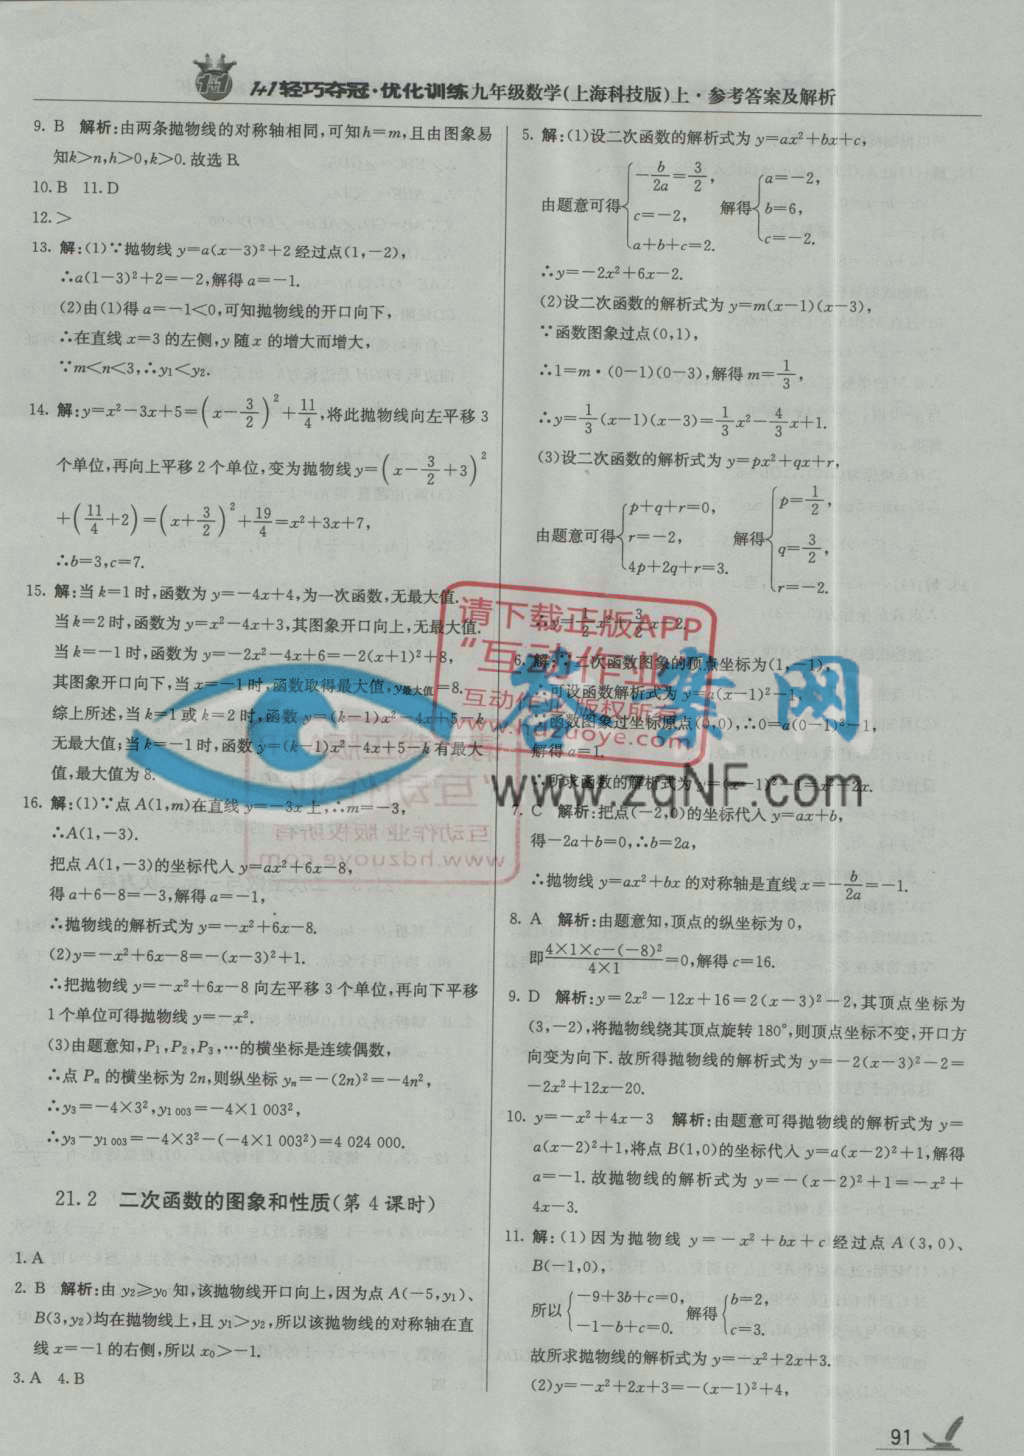 1+1轻巧夺冠·优化训练九年级数学(上海科技版)上·参考答案及解析
9. B 解析:由两条抛物线的对称轴相同,可知h=m,且由图象易
知k>n,h>0,k>0.故选B.
10. B 11. D
12. >
13. 解:(1)∵抛物线 y=a(x-3)²+2 经过点(1,-2),
∴a(1-3)²+2=-2,解得 a=-1.
(2)由(1)得 a=-1<0,可知抛物线的开口向下,
∴在直线 x=3 的左侧,y 随 x 的增大而增大,
∵m<n<3,∴y₁<y₂.
14. 解:y=x²-3x+5=(x-3/2)²+11/4,将此抛物线向左平移 3
个单位,再向上平移 2 个单位,变为抛物线 y=(x-3/2+3)²
+(11/4+2)=(x+3/2)²+19/4=x²+3x+7,
∴b=3,c=7.
15. 解:当 k=1 时,函数为 y=-4x+4,为一次函数,无最大值.
当 k=2 时,函数为 y=x²-4x+3,其图象开口向上,无最大值.
当 k=-1 时,函数为 y=-2x²-4x+6=-2(x+1)²+8,
其图象开口向下,当 x=-1 时,函数取得最大值,y最大值=8.
综上所述,当 k=1 或 k=2 时,函数 y=(k-1)x²-4x+5-k
无最大值;当 k=-1 时,函数 y=(k-1)x²-4x+5-k 有最大
值,最大值为 8.
16. 解:(1)∵点 A(1,m)在直线 y=-3x 上,∴m=-3,
∴A(1,-3).
把点 A(1,-3)的坐标代入 y=ax²+6x-8,
得 a+6-8=-3,解得 a=-1,
∴抛物线的解析式为 y=-x²+6x-8.
(2)y=-x²+6x-8=-(x-3)²+1.
∴把抛物线 y=-x²+6x-8 向左平移 3 个单位,再向下平移
1 个单位可得抛物线 y=-x².
(3)由题意知,P₁,P₂,P₃,…的横坐标是连续偶数,
∴点 Pₙ 的横坐标为 2n,则纵坐标 yₙ=-(2n)²=-4n²,
∴y₃=-4×3²,y₁ ₀₀₃=-4×1 003²,
∴y₃-y₁ ₀₀₃=-4×3²-(-4×1 003²)=4 024 000.
21.2 二次函数的图象和性质(第 4 课时)
1. A
2. B 解析:由 y₂≥y₀ 知,该抛物线开口向上,因为点 A(-5,y₁)、
B(3,y₂)均在抛物线上,且 y₁>y₂,所以该抛物线的对称轴在直
线 x=-1 的右侧,所以 x₀>-1.
3. A 4. B
5. 解:(1)设二次函数的解析式为 y=ax²+bx+c,
由题意可得{-b/2a=3/2, c=-2, a+b+c=2. 解得{a=-2, b=6, c=-2.
∴y=-2x²+6x-2.
(2)设二次函数的解析式为 y=m(x-1)(x-3),
∵函数图象过点(0,1),
∴1=m·(0-1)(0-3),解得 m=1/3,
∴y=1/3(x-1)(x-3)=1/3x²-4/3x+1.
(3)设二次函数的解析式为 y=px²+qx+r,
由题意可得{p+q+r=0, r=-2, 4p+2q+r=3. 解得{p=1/2, q=3/2, r=-2.
∴y=1/2x²+3/2x-2.
6. 解:∵二次函数图象的顶点坐标为(1,-1),
∴可设函数解析式为 y=a(x-1)²-1,
∵函数图象过坐标原点(0,0),∴0=a(0-1)²-1,
解得 a=1.
∴所求函数的解析式为 y=(x-1)²-1=x²-2x.
7. C 解析:把点(-2,0)的坐标代入 y=ax+b,
得-2a+b=0,∴b=2a,
∴抛物线 y=ax²+bx 的对称轴是直线 x=-b/2a=-1.
8. A 解析:由题意知,顶点的纵坐标为 0,
即(4×1×c-(-8)²)/(4×1)=0,解得 c=16.
9. D 解析:y=2x²-12x+16=2(x-3)²-2,其顶点坐标为
(3,-2),将抛物线绕其顶点旋转 180°,则顶点坐标不变,开口方
向变为向下.故所得抛物线的解析式为 y=-2(x-3)²-2=
-2x²+12x-20.
10. y=-x²+4x-3 解析:由题意可得抛物线的解析式为 y=
a(x-2)²+1,将点 B(1,0)的坐标代入 y=a(x-2)²+1,解得
a=-1.故抛物线的解析式为 y=-(x-2)²+1=-x²+
4x-3.
11. 解:(1)因为抛物线 y=-x²+bx+c 经过点 A(3,0)、
B(-1,0),
所以{-9+3b+c=0, -1-b+c=0. 解得{b=2, c=3.
故所求抛物线的解析式为 y=-x²+2x+3.
(2)y=-x²+2x+3=-(x-1)²+4,
91
请下载正版APP
“互动作业”
互动作业 版权所有
www.hdzuoye.com
答案网
www.zqNF.com